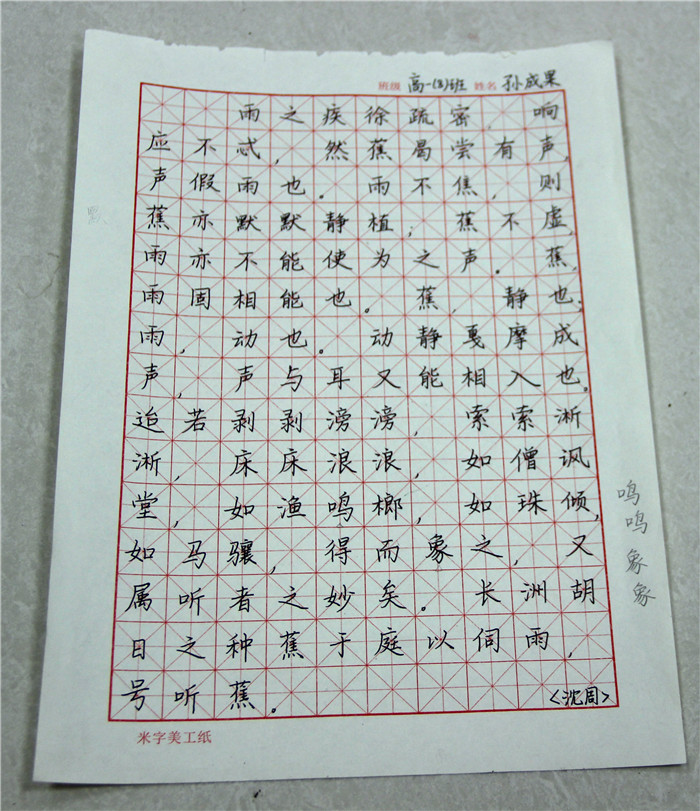 班级 高一(8)班 姓名 孙成果
雨之疾徐疏密，响
应不忒，然蕉曷尝有声，
声假雨也。雨不集，则
蕉亦默默静植；蕉不虚，
雨亦不能使为之声。蕉，
雨固相能也。蕉，静也；
雨，动也。动静戛摩成
声，声与耳又能相入也。
迨若剥剥滂滂，索索淅
淅，床床浪浪，如僧讽
堂，如渔鸣榔，如珠倾，
如马骧，得而象之，又
属听者之妙矣。长洲胡
日之种蕉于庭以伺雨，
号听蕉。〈沈周〉
米字美工纸
鸣
鸣
象
象